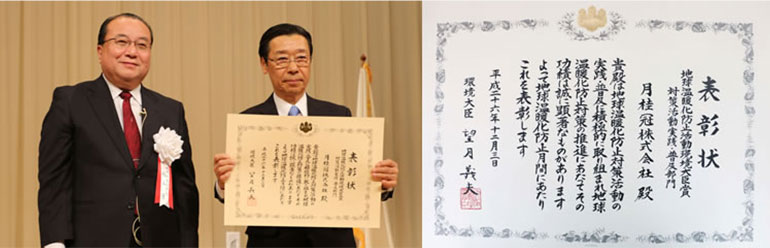 表彰状
月桂冠株式会社 殿
表彰状
地球温暖化防止活動環境大臣賞
対策活動実践・普及部門
月桂冠株式会社 殿
貴殿は地球温暖化防止対策活動の
実践・普及に積極的に取り組まれ地球
温暖化防止対策の推進にあたてその
功績は誠に顕著なものがあります
よって地球温暖化防止月間にあたり
これを表彰します
平成二十六年十二月三日
環境大臣 望月義夫